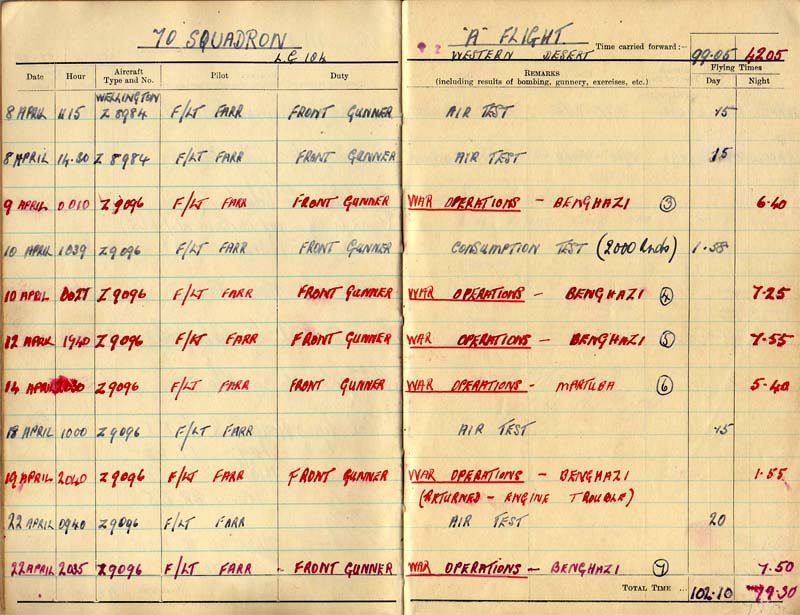 70 SQUADRON
L.G 104
"A" FLIGHT
WESTERN DESERT
Time carried forward:— 99.05 42.05
Date Hour Aircraft Type and No. Pilot Duty REMARKS (including results of bombing, gunnery, exercises, etc.) Flying Times Day Night
WELLINGTON
8 APRIL 1115 Z 8984 F/LT FARR FRONT GUNNER AIR TEST .15
8 APRIL 14.30 Z 8984 F/LT FARR FRONT GUNNER AIR TEST 15
9 APRIL 0010 Z 9096 F/LT FARR FRONT GUNNER WAR OPERATIONS - BENGHAZI ③ 6.40
10 APRIL 1039 Z9096 F/LT FARR FRONT GUNNER CONSUMPTION TEST (2000 Rnds) 1.58
10 APRIL Z9096 F/LT FARR FRONT GUNNER WAR OPERATIONS - BENGHAZI ④ 7.25
12 APRIL 1940 Z9096 F/LT FARR FRONT GUNNER WAR OPERATIONS - BENGHAZI ⑤ 7.55
14 APRIL Z9096 F/LT FARR FRONT GUNNER WAR OPERATIONS - MARTUBA ⑥ 5.40
18 APRIL 1000 Z9096 F/LT FARR AIR TEST .15
19 APRIL 2040 Z9096 F/LT FARR FRONT GUNNER WAR OPERATIONS - BENGHAZI 1.55
(RETURNED - ENGINE TROUBLE)
22 APRIL 0940 Z9096 F/LT FARR AIR TEST 20
22 APRIL 2035 Z9096 F/LT FARR - FRONT GUNNER WAR OPERATIONS - BENGHAZI ⑦ 7.50
TOTAL TIME ... 102.10 79.30